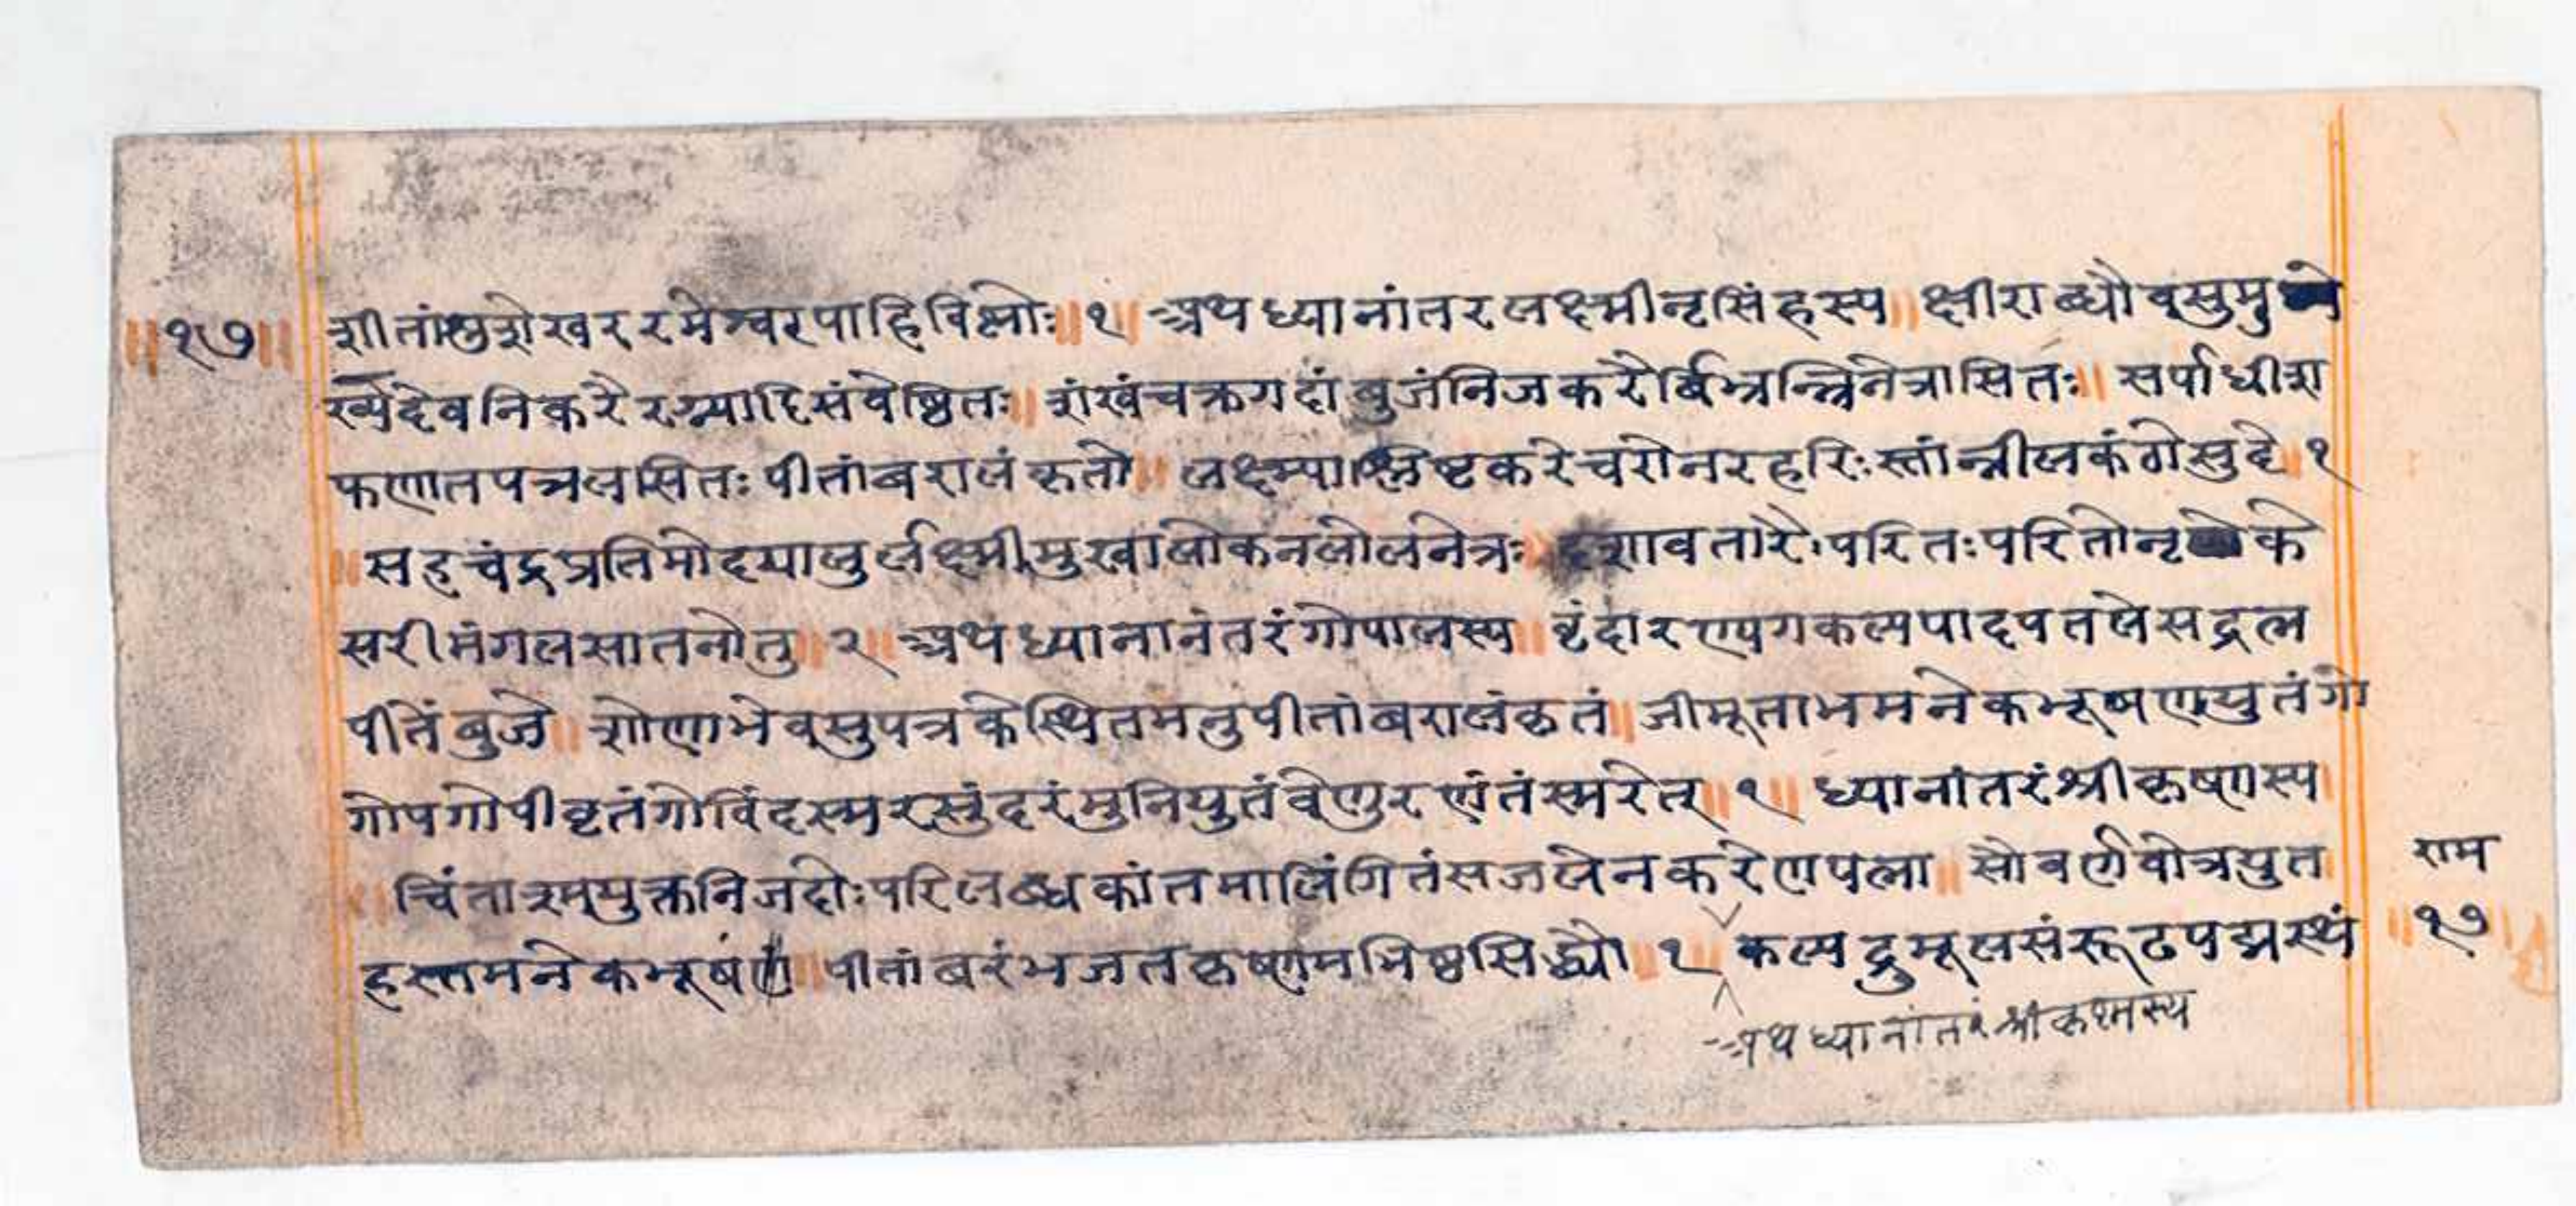 ॥१७॥
शीतांशुशेखररमेश्वरपाहिविष्णोः॥१॥ अथध्यानांतरलक्ष्मीनृसिंहस्य॥ क्षीराब्धौवसुमु
ख्यदेवनिकरैरग्र्यादिसंवेष्ठितः॥ शंखंचक्रगदांबुजंनिजकरैर्बिभ्रन्त्रिनेत्रासितः॥ सर्पाधीश
फणातपत्रलसितः पीतांबरालंकृतो॥ लक्ष्म्याश्लिष्टकरेचरोनरहरिःस्तांन्नीलकंठोमुदे॥१
॥सहचंद्रप्रतिमोदयालुर्लक्ष्मीमुखालोकनलोलनेत्रः॥ दशावतारैःपरितःपरितोनृ के
सरीमंगलसातनोतु॥२॥ अथध्यानानंतरंगोपालस्य॥ वृंदारण्यगकल्पपादपतलेसद्रत्न
पीतेंबुजे॥ शोणाभेवसुपत्रकेस्थितमनुपीतांबरालंकृतं॥ जीमूताभमनेकभूषणयुतंगो
गोपगोपीवृतंगोविंदस्मरसुंदरंमुनियुतंवेणुरणंतंस्मरेत्॥१॥ ध्यानांतरंश्रीकृषणस्य
॥चिंताश्मयुक्तनिजदोःपरिलब्धकांतमालिंगितंसजलेनकरेणपत्ना॥ सौवर्णवेत्रयुत
राम
हस्तमनेकभूषणं॥ पीतांबरंभजतकृष्णमभिष्ठसिद्ध्यै॥१॥ कल्पद्रुमूलसंरूढपद्मस्थं
॥१७॥
अथध्यानांतरंश्रीकृश्नस्य